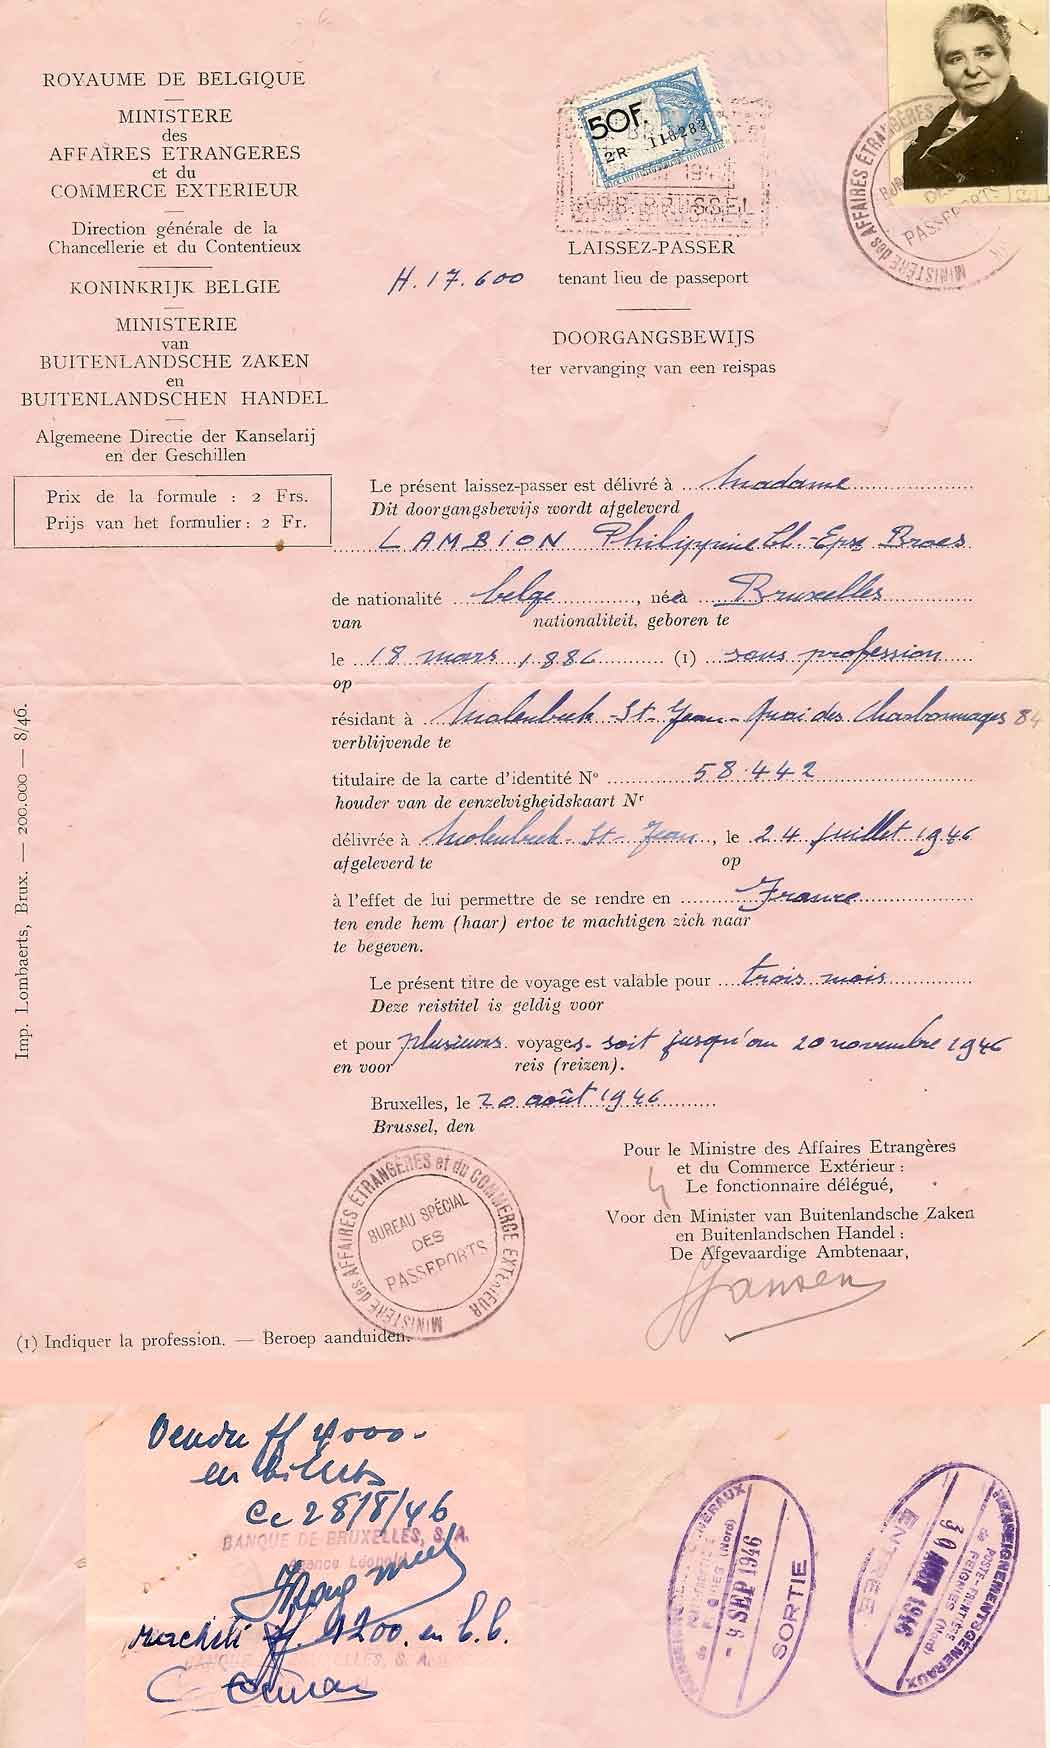 ROYAUME DE BELGIQUE
MINISTERE
des
AFFAIRES ETRANGERES
et du
COMMERCE EXTERIEUR
Direction générale de la
Chancellerie et du Contentieux
KONINKRIJK BELGIE
MINISTERIE
van
BUITENLANDSCHE ZAKEN
en
BUITENLANDSCHEN HANDEL
Algemeene Directie der Kanselarij
en der Geschillen
Prix de la formule : 2 Frs.
Prijs van het formulier : 2 Fr.
50F.
2R 118282
BRUSSEL
MINISTÈRE des AFFAIRES ÉTRANGÈRES
PASSEPORTS
LAISSEZ-PASSER
H. 17.600 tenant lieu de passeport
DOORGANGSBEWIJS
ter vervanging van een reispas
Le présent laissez-passer est délivré à Madame
Dit doorgangsbewijs wordt afgeleverd
LAMBION Philippine Cl. Epse Broes
de nationalité belge, née à Bruxelles
van nationaliteit, geboren te
le 18 mars 1886 (1) sans profession
op
résidant à Molenbeek-St-Jean-Quai des Charbonnages 84
verblijvende te
titulaire de la carte d'identité No 58.442
houder van de eenzelvigheidskaart Nr
délivrée à Molenbeek-St-Jean, le 24 juillet 1946
afgeleverd te op
à l'effet de lui permettre de se rendre en France
ten ende hem (haar) ertoe te machtigen zich naar
te begeven.
Le présent titre de voyage est valable pour trois mois
Deze reistitel is geldig voor
et pour plusieurs voyages - soit jusqu'au 20 novembre 1946
en voor reis (reizen).
Bruxelles, le 20 août 1946
Brussel, den
Pour le Ministre des Affaires Etrangères
et du Commerce Extérieur :
Le fonctionnaire délégué,
Voor den Minister van Buitenlandsche Zaken
en Buitenlandschen Handel :
De Afgevaardige Ambtenaar,
Jansen
MINISTÈRE des AFFAIRES ÉTRANGÈRES et du COMMERCE EXTÉRIEUR
BUREAU SPÉCIAL
DES
PASSEPORTS
(1) Indiquer la profession. — Beroep aanduiden.
Imp. Lombaerts, Brux. — 200.000 — 8/46.
Vendu ff 4000 -
en billets
Ce 28/8/46
BANQUE DE BRUXELLES, S. A.
Agence Léopold
racheté ff. 1200. en b.b.
BANQUE DE BRUXELLES, S. A.
- 9 SEP 1946
SORTIE
RENSEIGNEMENTS GÉNÉRAUX
POSTE-FRONTIÈRE
de FEIGNIES (Nord)
30 AOUT 1946
ENTRÉE